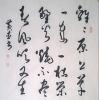 離離原上草
一歲一枯榮
野火燒不盡
春風吹又生